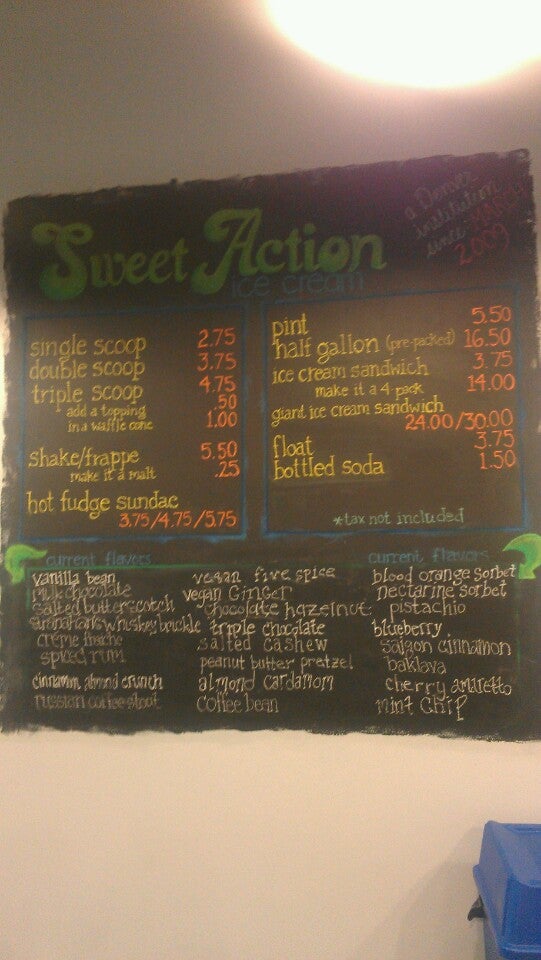 Sweet Action
ice cream
a Denver
institution
since MARCH
2009
single scoop 2.75
double scoop 3.75
triple scoop 4.75
add a topping .50
in a waffle cone 1.00
shake/frappe 5.50
make it a malt .25
hot fudge sundae
3.75/4.75/5.75
pint 5.50
half gallon (pre-packed) 16.50
ice cream sandwich 3.75
make it a 4 pack 14.00
giant ice cream sandwich
24.00/30.00
float 3.75
bottled soda 1.50
*tax not included
current flavors
vanilla bean
milk chocolate
salted butterscotch
stranahans whiskey brickle
crème fraiche
spiced rum
cinnamon almond crunch
russian coffee stout
vegan five spice
vegan Ginger
chocolate hazelnut
triple chocolate
salted cashew
peanut butter pretzel
almond cardamom
coffee bean
current flavors
blood orange sorbet
nectarine sorbet
pistachio
blueberry
saigon cinnamon
baklava
cherry amaretto
mint CHIP